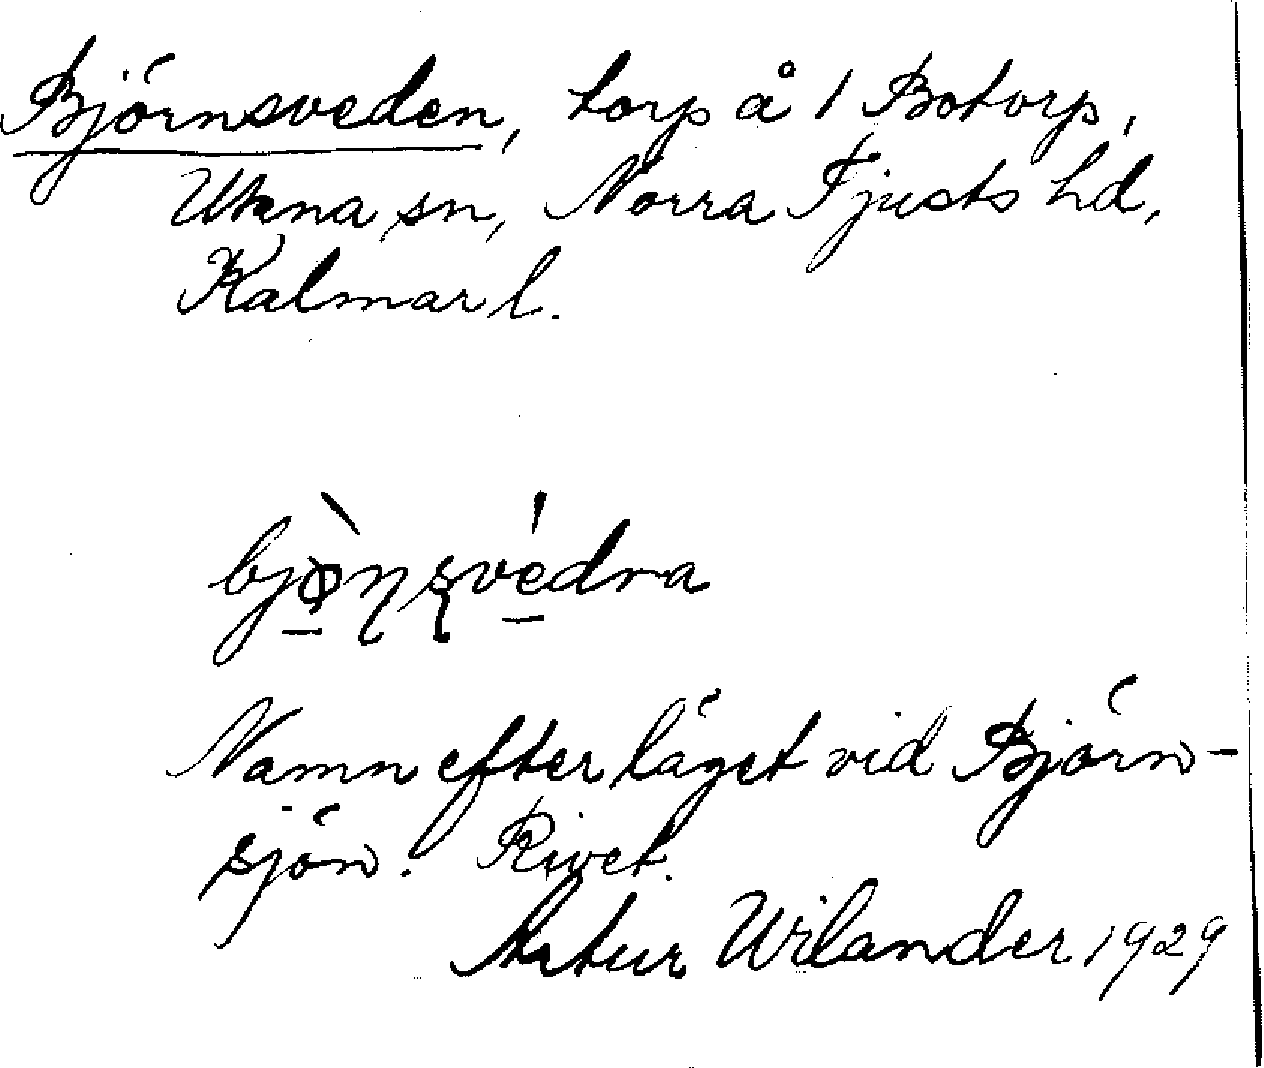 Björnsveden, torp å 1 Botorp,
Ukna sn, Norra Tjusts hd,
Kalmar l.
Namn efter läget vid Björn-
sjön. Rivet.
Artur Wilander 1929